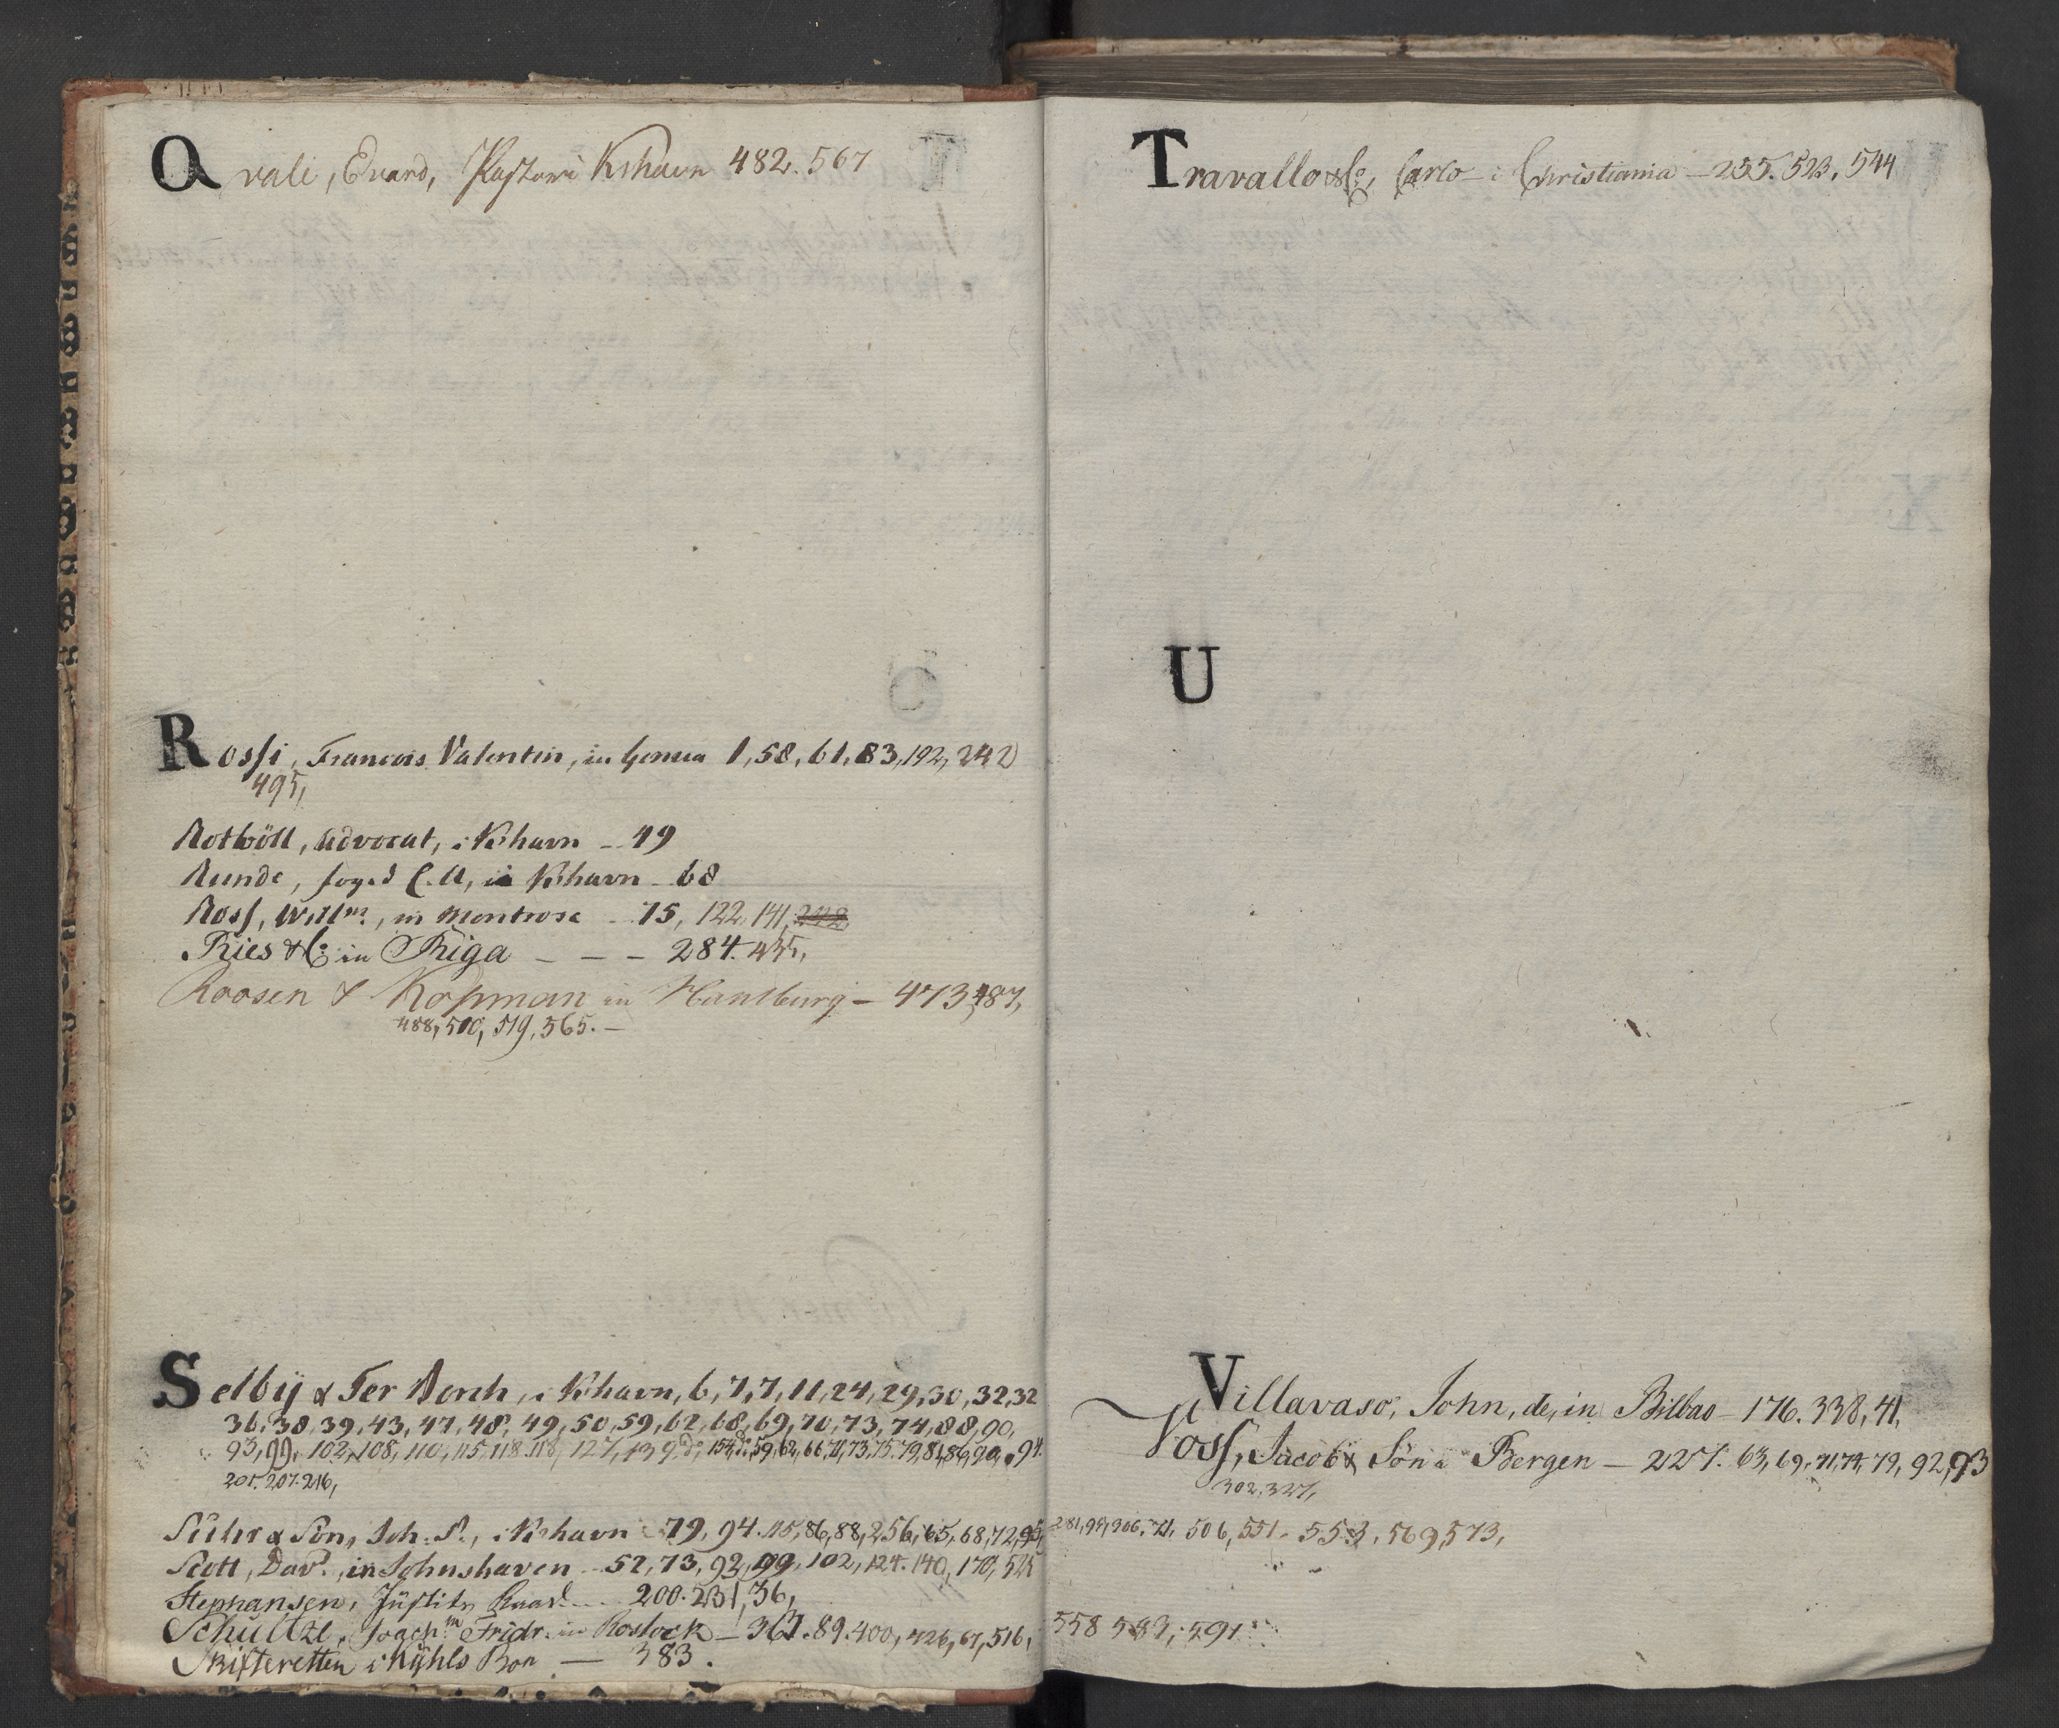 Qvale, Evard, Pastor i Kshavn 482. 567
Rossi, Francois Valentin, in Genua 1, 58, 61, 83, 192, 242
495,
Rotböll, Advocat, i Kshavn – 49
Runde, foged C. U, in Kshavn – 68
Ross, Willm, in Montrose – 75, 122, 141, 248
Ries & Co in Riga – – – 284. 435,
Roosen & Kopman in Hamburg – 473, 487,
488, 510, 519, 565. –
Selbÿ & Ter Borch, i Kshavn, 6, 7, 7, 11, 24, 29, 30, 32, 32
36, 38, 39, 43, 47, 48, 49, 50, 59, 62, 68, 69, 70, 73, 74, 88, 90,
93, 99, 102, 108, 110, 115, 118. 118, 127, 139 do, 154 do, 59, 62, 66, 71, 73, 75. 79, 81, 86, 90, 94.
205. 207. 216,
Suhr & Sön, Joh. P., i Kshavn 79, 94. 115, 86, 88, 256, 65, 68, 72, 95,
Scott, Davd., in Johnshaven – 52, 73, 92, 99, 102, 124. 140, 170, 525
Stephansen, Jüstits Raad – 200. 231, 36,
Schultze, Joachm Fridr. in Rostock – 367. 89. 400, 426, 67, 516,
Skifteretten i Kÿhls Boe – 383.
Travallo & Co, Carlo – i Christiania – 255. 523, 544
U
Villavaso, John, de, in Bilbao – 176. 338, 41,
Voss, Jacob & Sön i Bergen – 227. 63, 69, 71, 74, 79, 92, 93
302. 327,
281, 94, 306, 21, 506, 551, 553, 569, 573,
558 583, 591